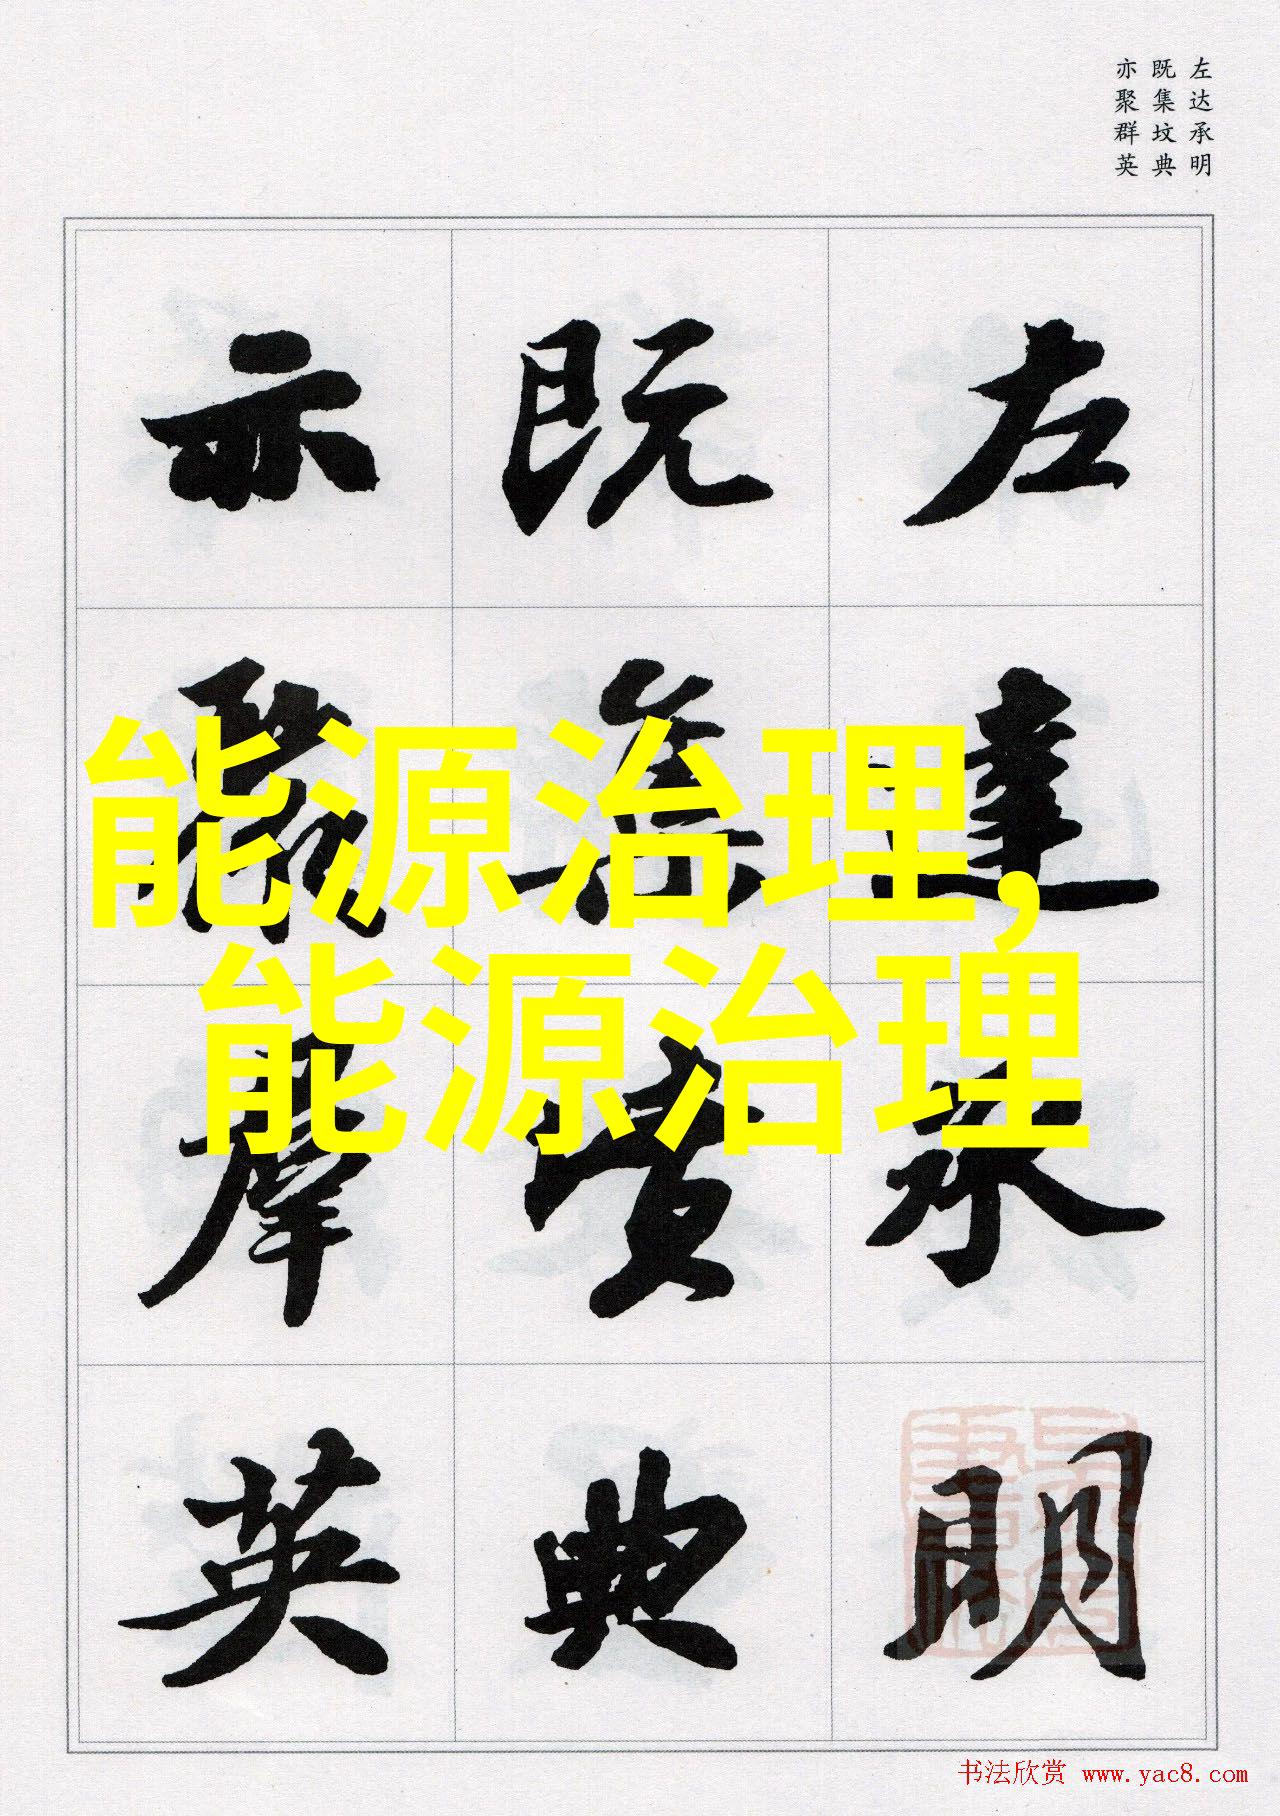 左达承明
既集坟典
亦聚群英
左達承明
既集墳典
亦聚群英
能源治理,
能源治理
书法欣赏 www.yac8.com